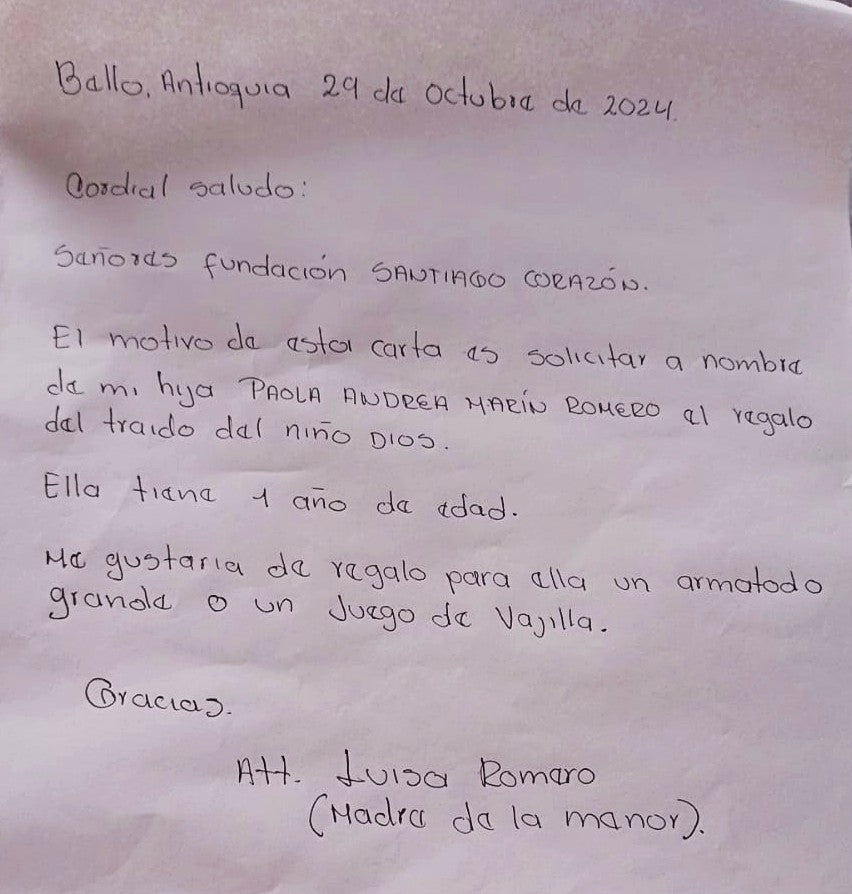 Bello, Antioquia 29 de octubre de 2024.
Cordial saludo:
Señores fundación SANTIAGO CORAZÓN.
El motivo de esta carta es solicitar a nombre
de mi hija PAOLA ANDREA MARÍN ROMERO el regalo
del traido del niño DIOS.
Ella tiene 1 año de edad.
Me gustaria de regalo para ella un armatodo
grande o un Juego de Vajilla.
Gracias.
Att. Luisa Romero
(Madre de la menor).